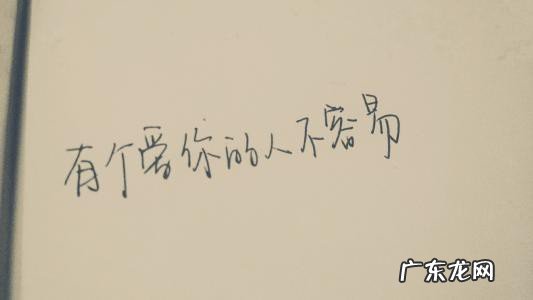 有个爱你的人不容易
广东龙网